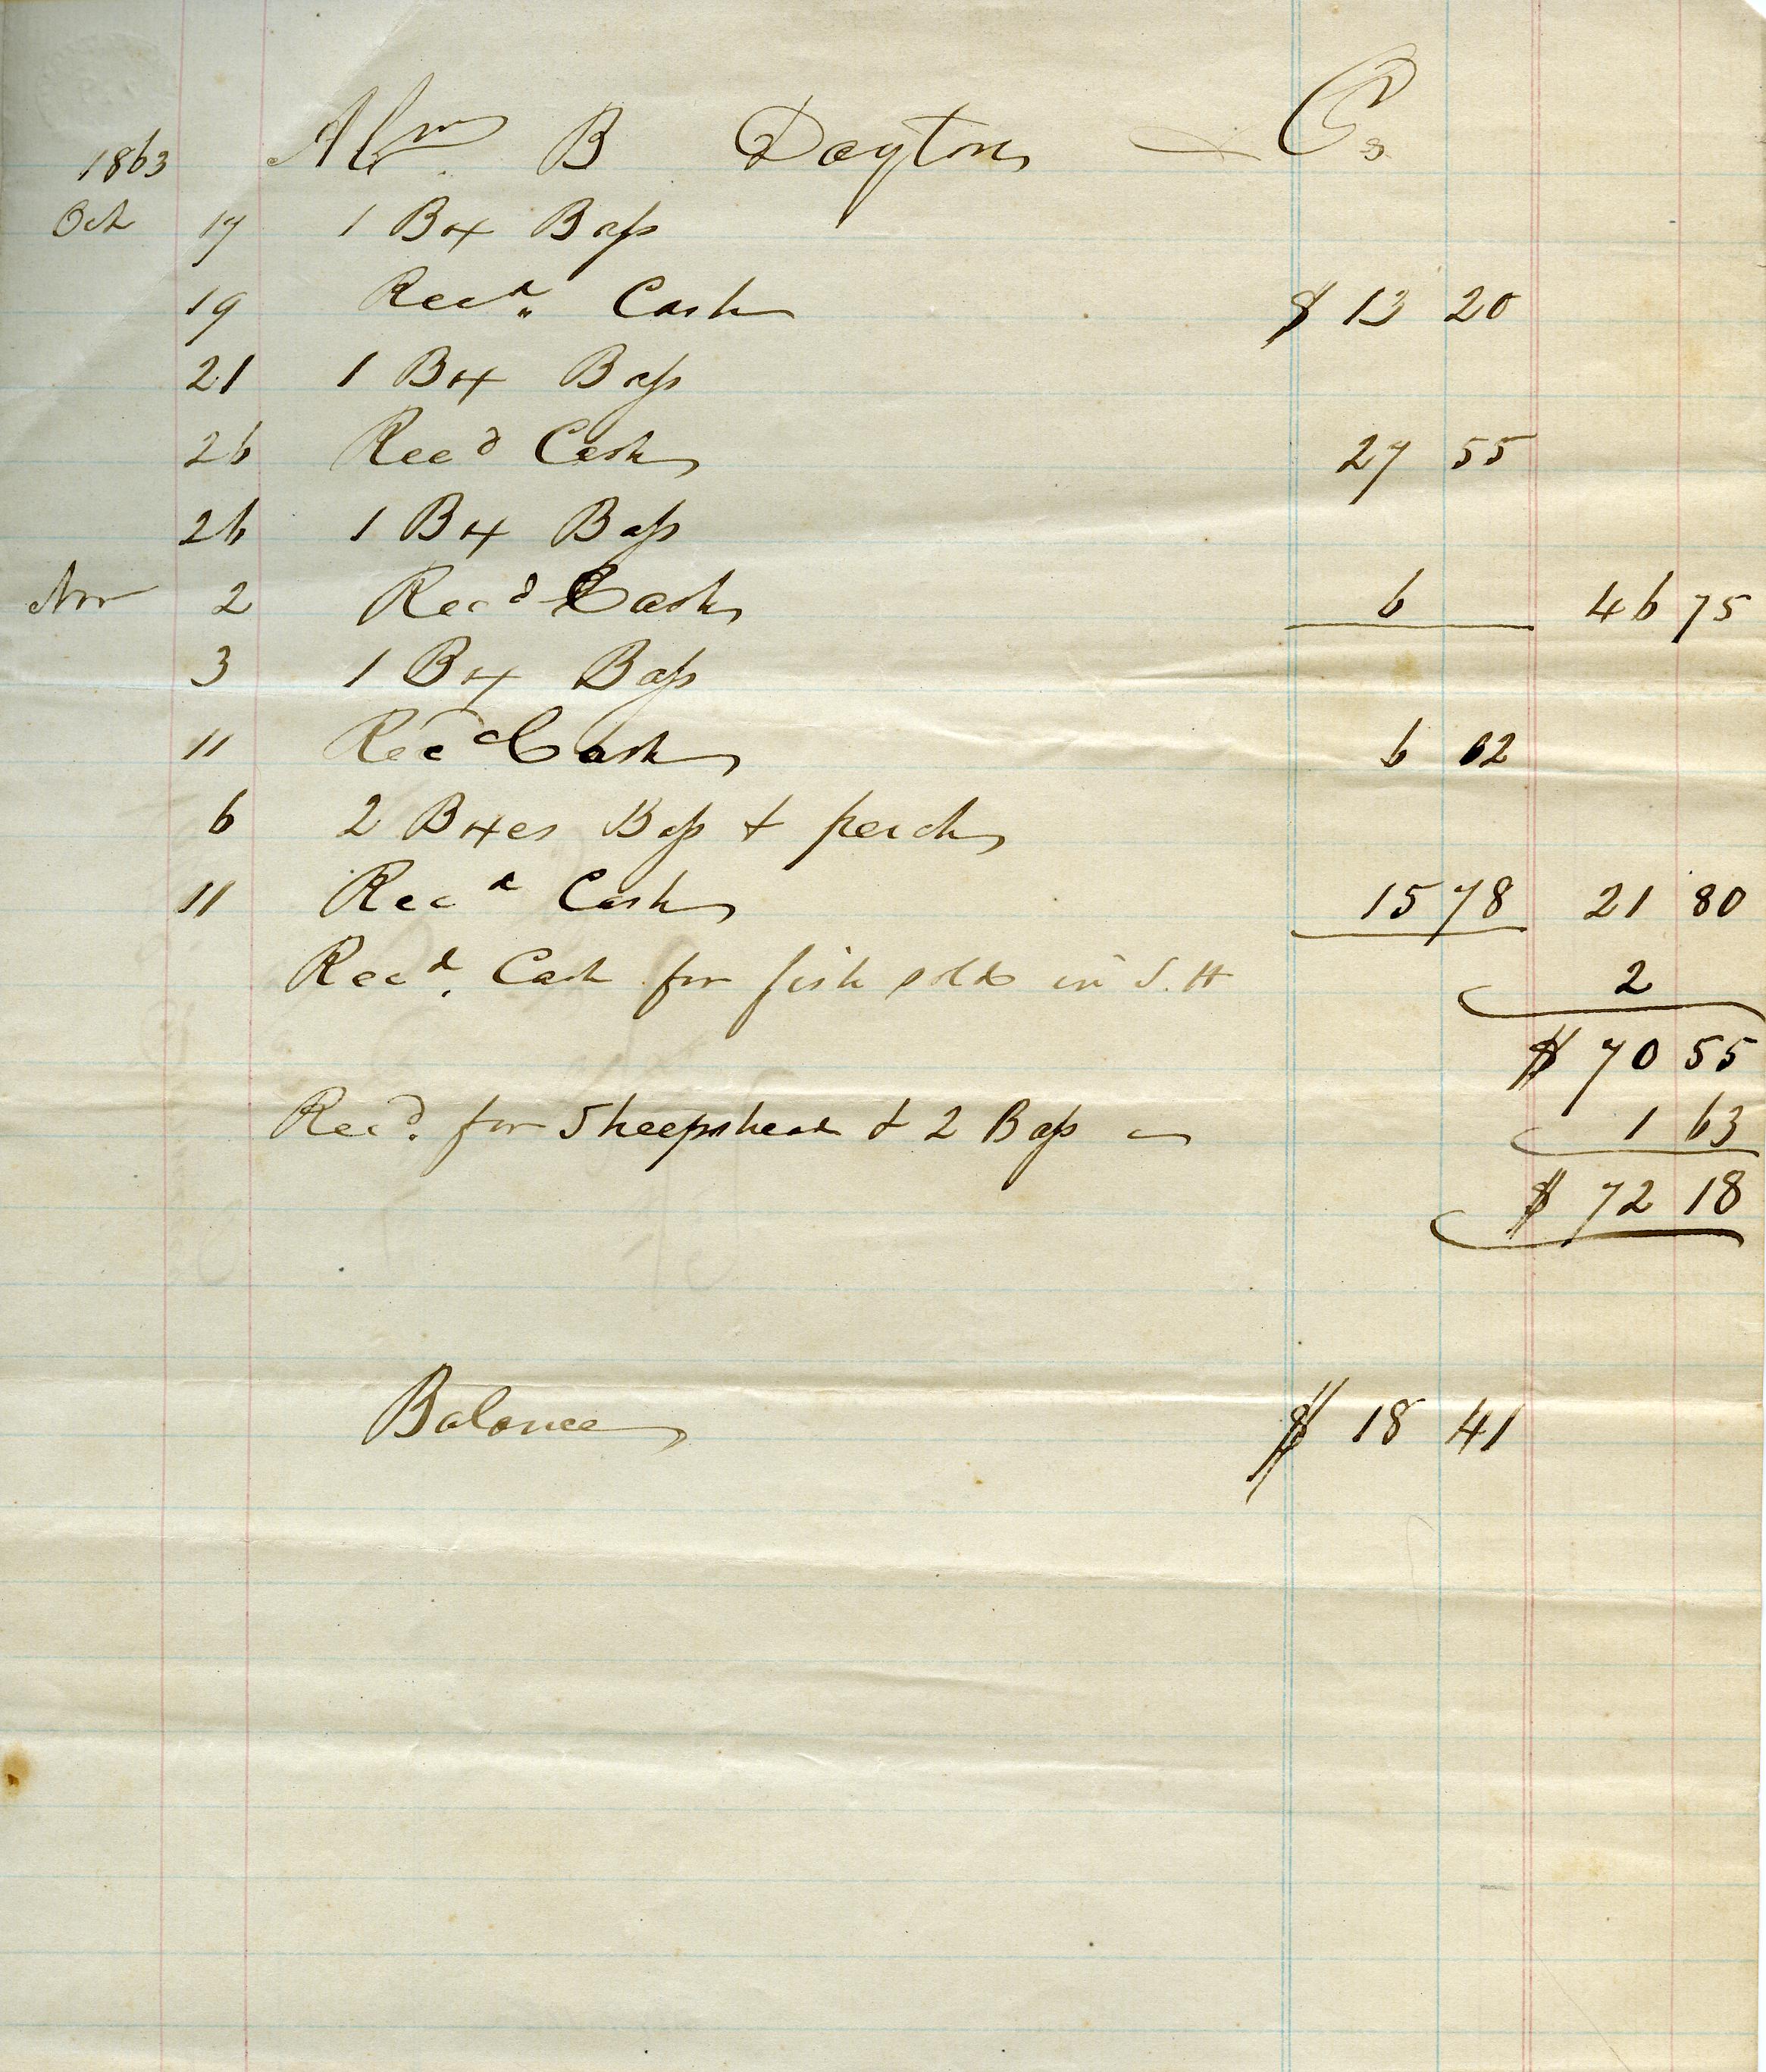 1863 Abm. B Dayton — Cr
Oct 17 1 Bx Bass
19 Recd. Cash $ 13 20
21 1 Bx Bass
26 Recd Cash 27 55
26 1 Bx Bass
Nov 2 Recd Cash 6 46 75
3 1 Bx Bass
11 Recd Cash 6 02
6 2 Bxes Bass & perch
11 Recd Cash 15 78 21 80
Recd. Cash for fish sold in S. H 2
$ 70 55
Recd. for Sheepshead & 2 Bass — 1 63
$ 72 18
Balance $ 18 41